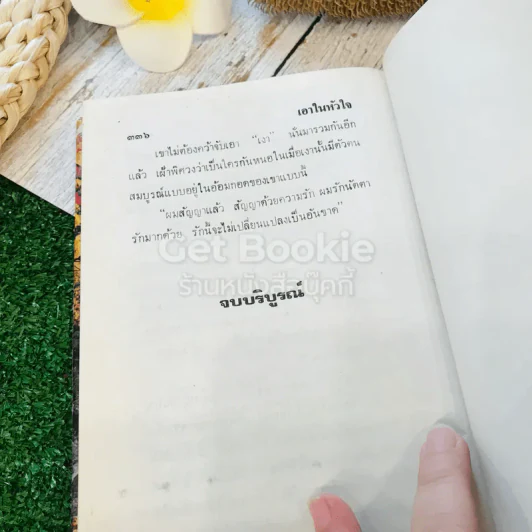 ๓๓๖
เอาในหัวใจ
เขาไม่ต้องคว้าจับเอา "เงา" นั้นมารวมกันอีก
แล้ว เฝ้าพิศวงว่าเป็นใครกันหนอในเมื่อเงานั้นมีตัวคน
สมบูรณ์แบบอยู่ในอ้อมกอดของเขาแบบนี้
"ผมสัญญาแล้ว สัญญาด้วยความรัก ผมรักนัดดา
รักมากด้วย รักนี้จะไม่เปลี่ยนแปลงเป็นอันขาด"
Get Bookie
ร้านหนังสือบุ๊คกี้
จบบริบูรณ์